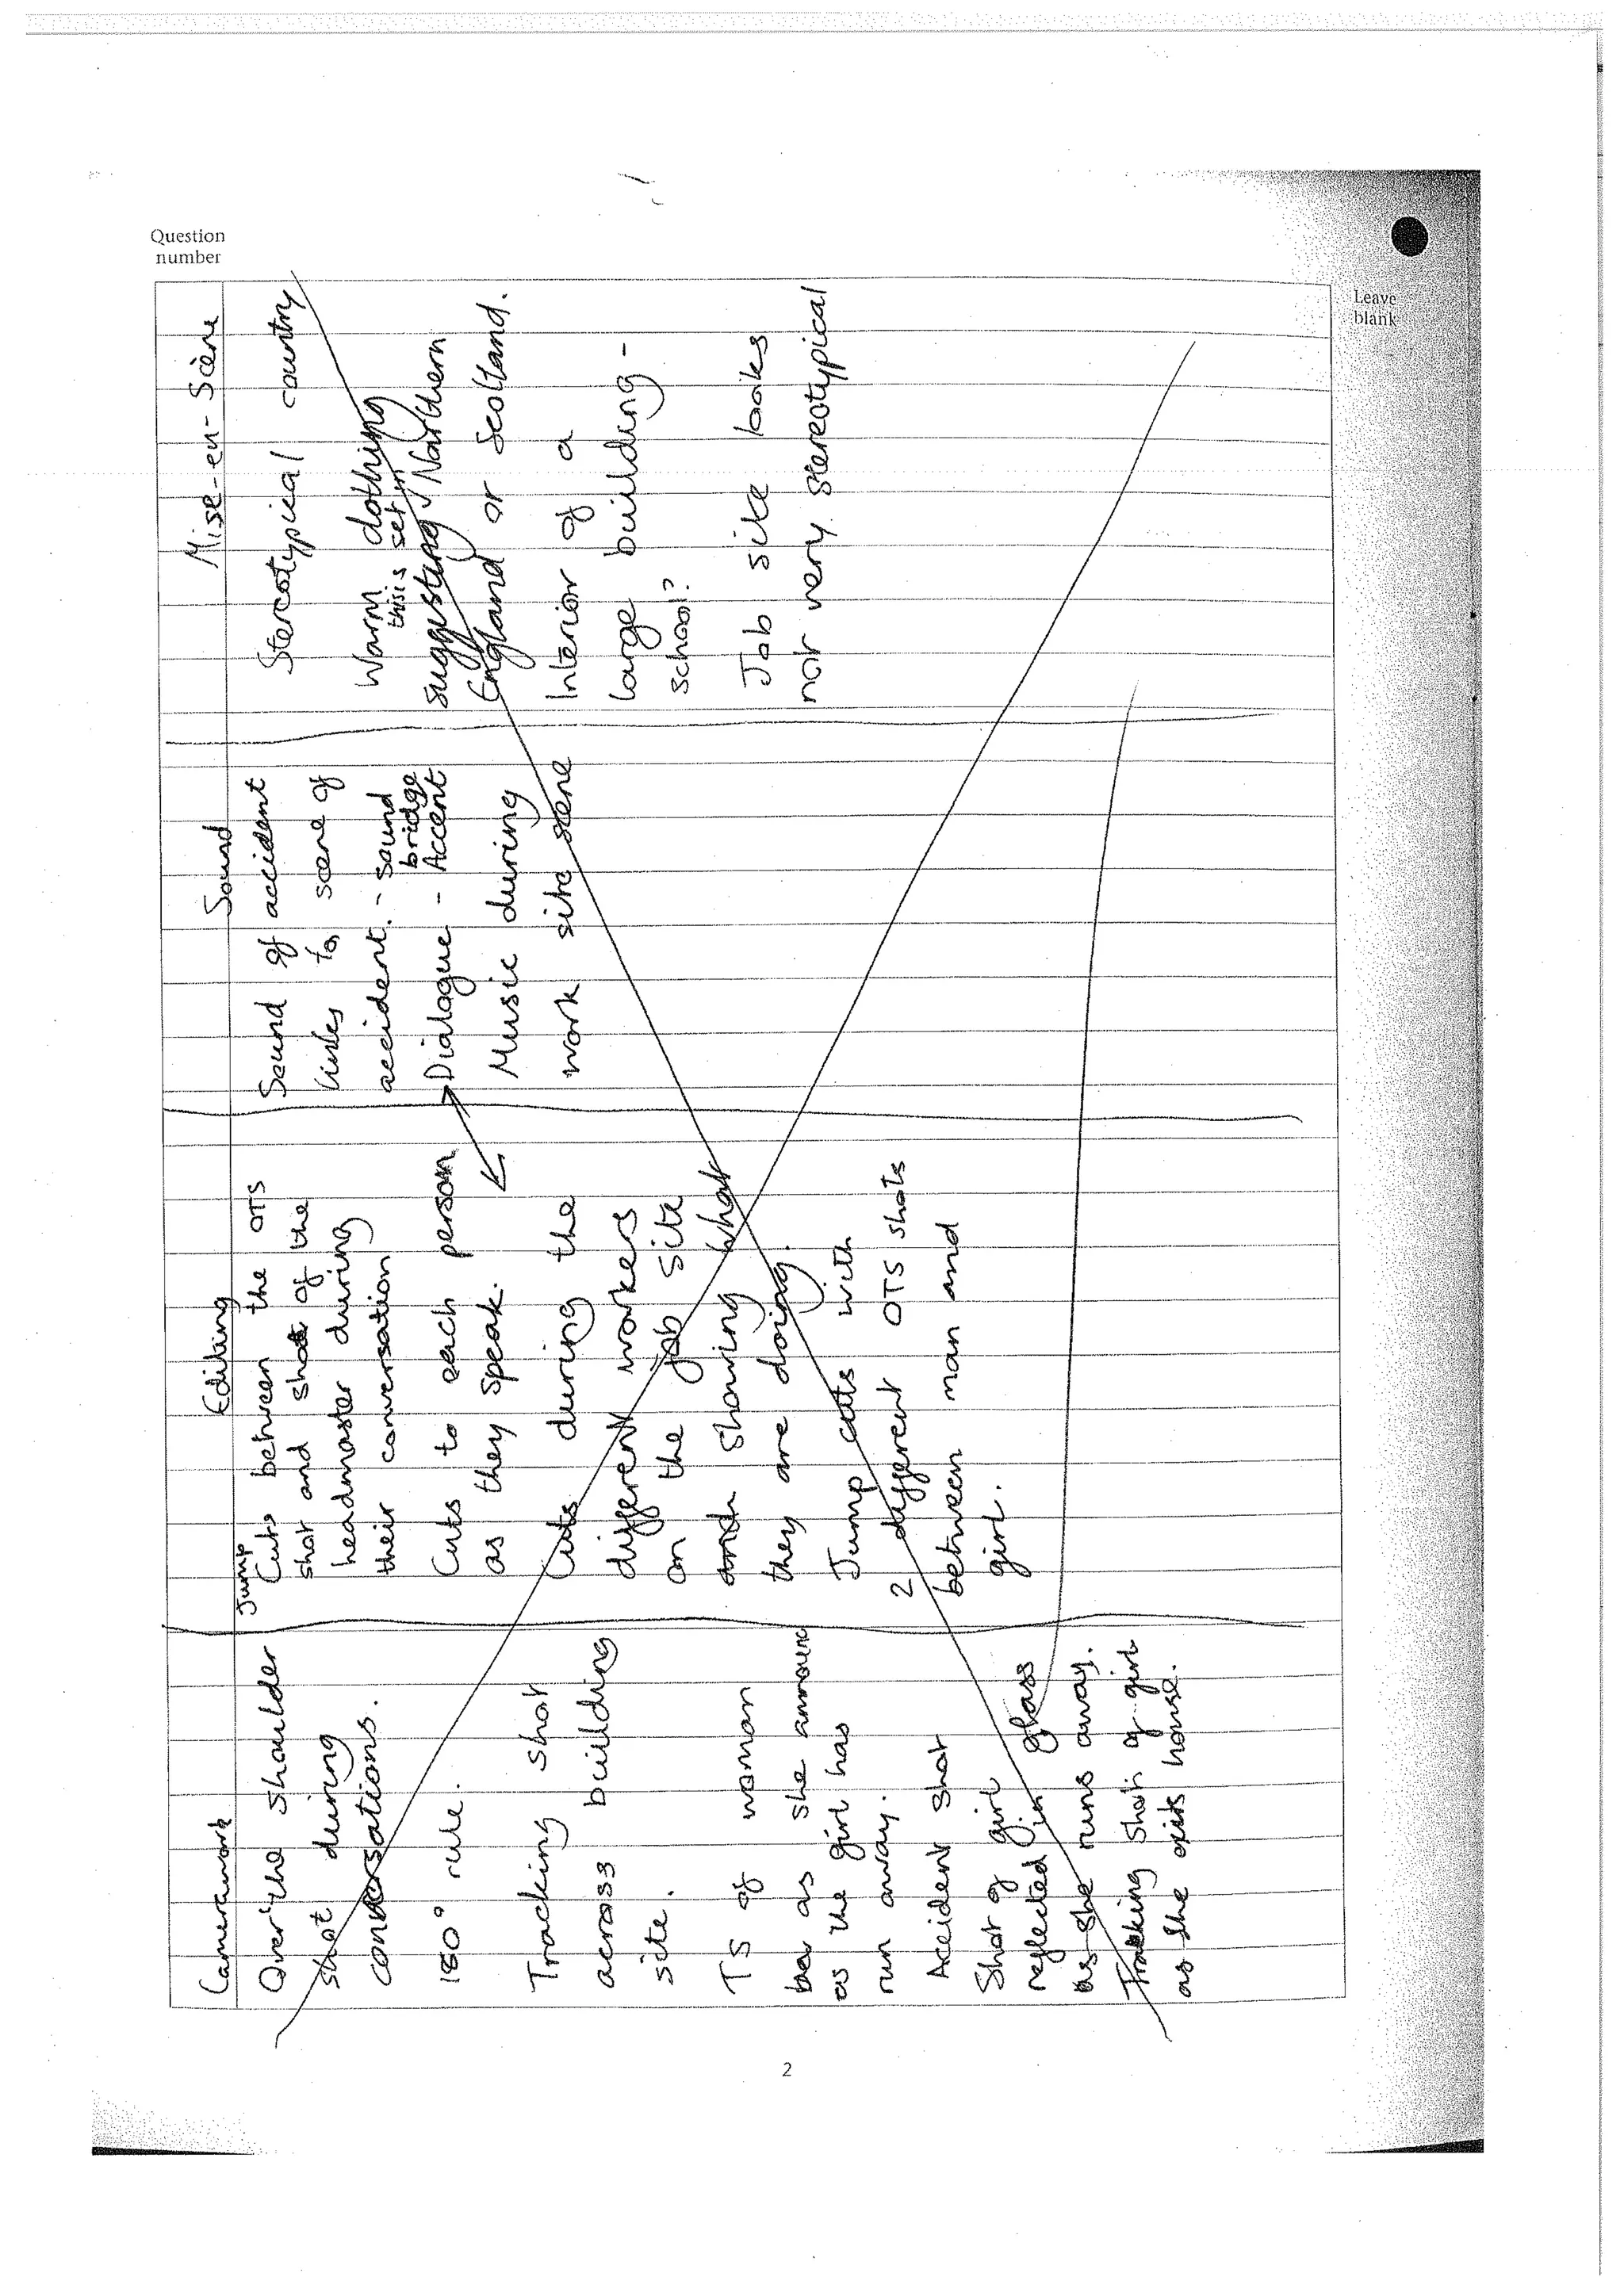 Question
number
Leave
blank
Camerawork
Over the shoulder
shot during
conversations.
180° rule.
Tracking shot
across building
site.
TS of woman
as she announc
as the girl has
run away.
Accident shot
Shot of girl
reflected in glass
as she runs away.
Tracking shot of girl
as she exits house.
Editing
Jump
Cuts between the OTS
shot and shot of the
headmaster during
their conversation
Cuts to each person
as they speak.
Cuts during the
different workers
on the job site
and showing what
they are doing.
Jump cuts with
2 different OTS shots
between man and
girl.
Sound
Sound of accident
links to scene of
accident. - sound
bridge
Dialogue - Accent
Music during
work site scene
Mise-en-Scène
Stereotypical country
Warm clothing
this is set in
suggesting Northern
England or Scotland.
Interior of a
large building -
school?
Job site looks
not very stereotypical
2